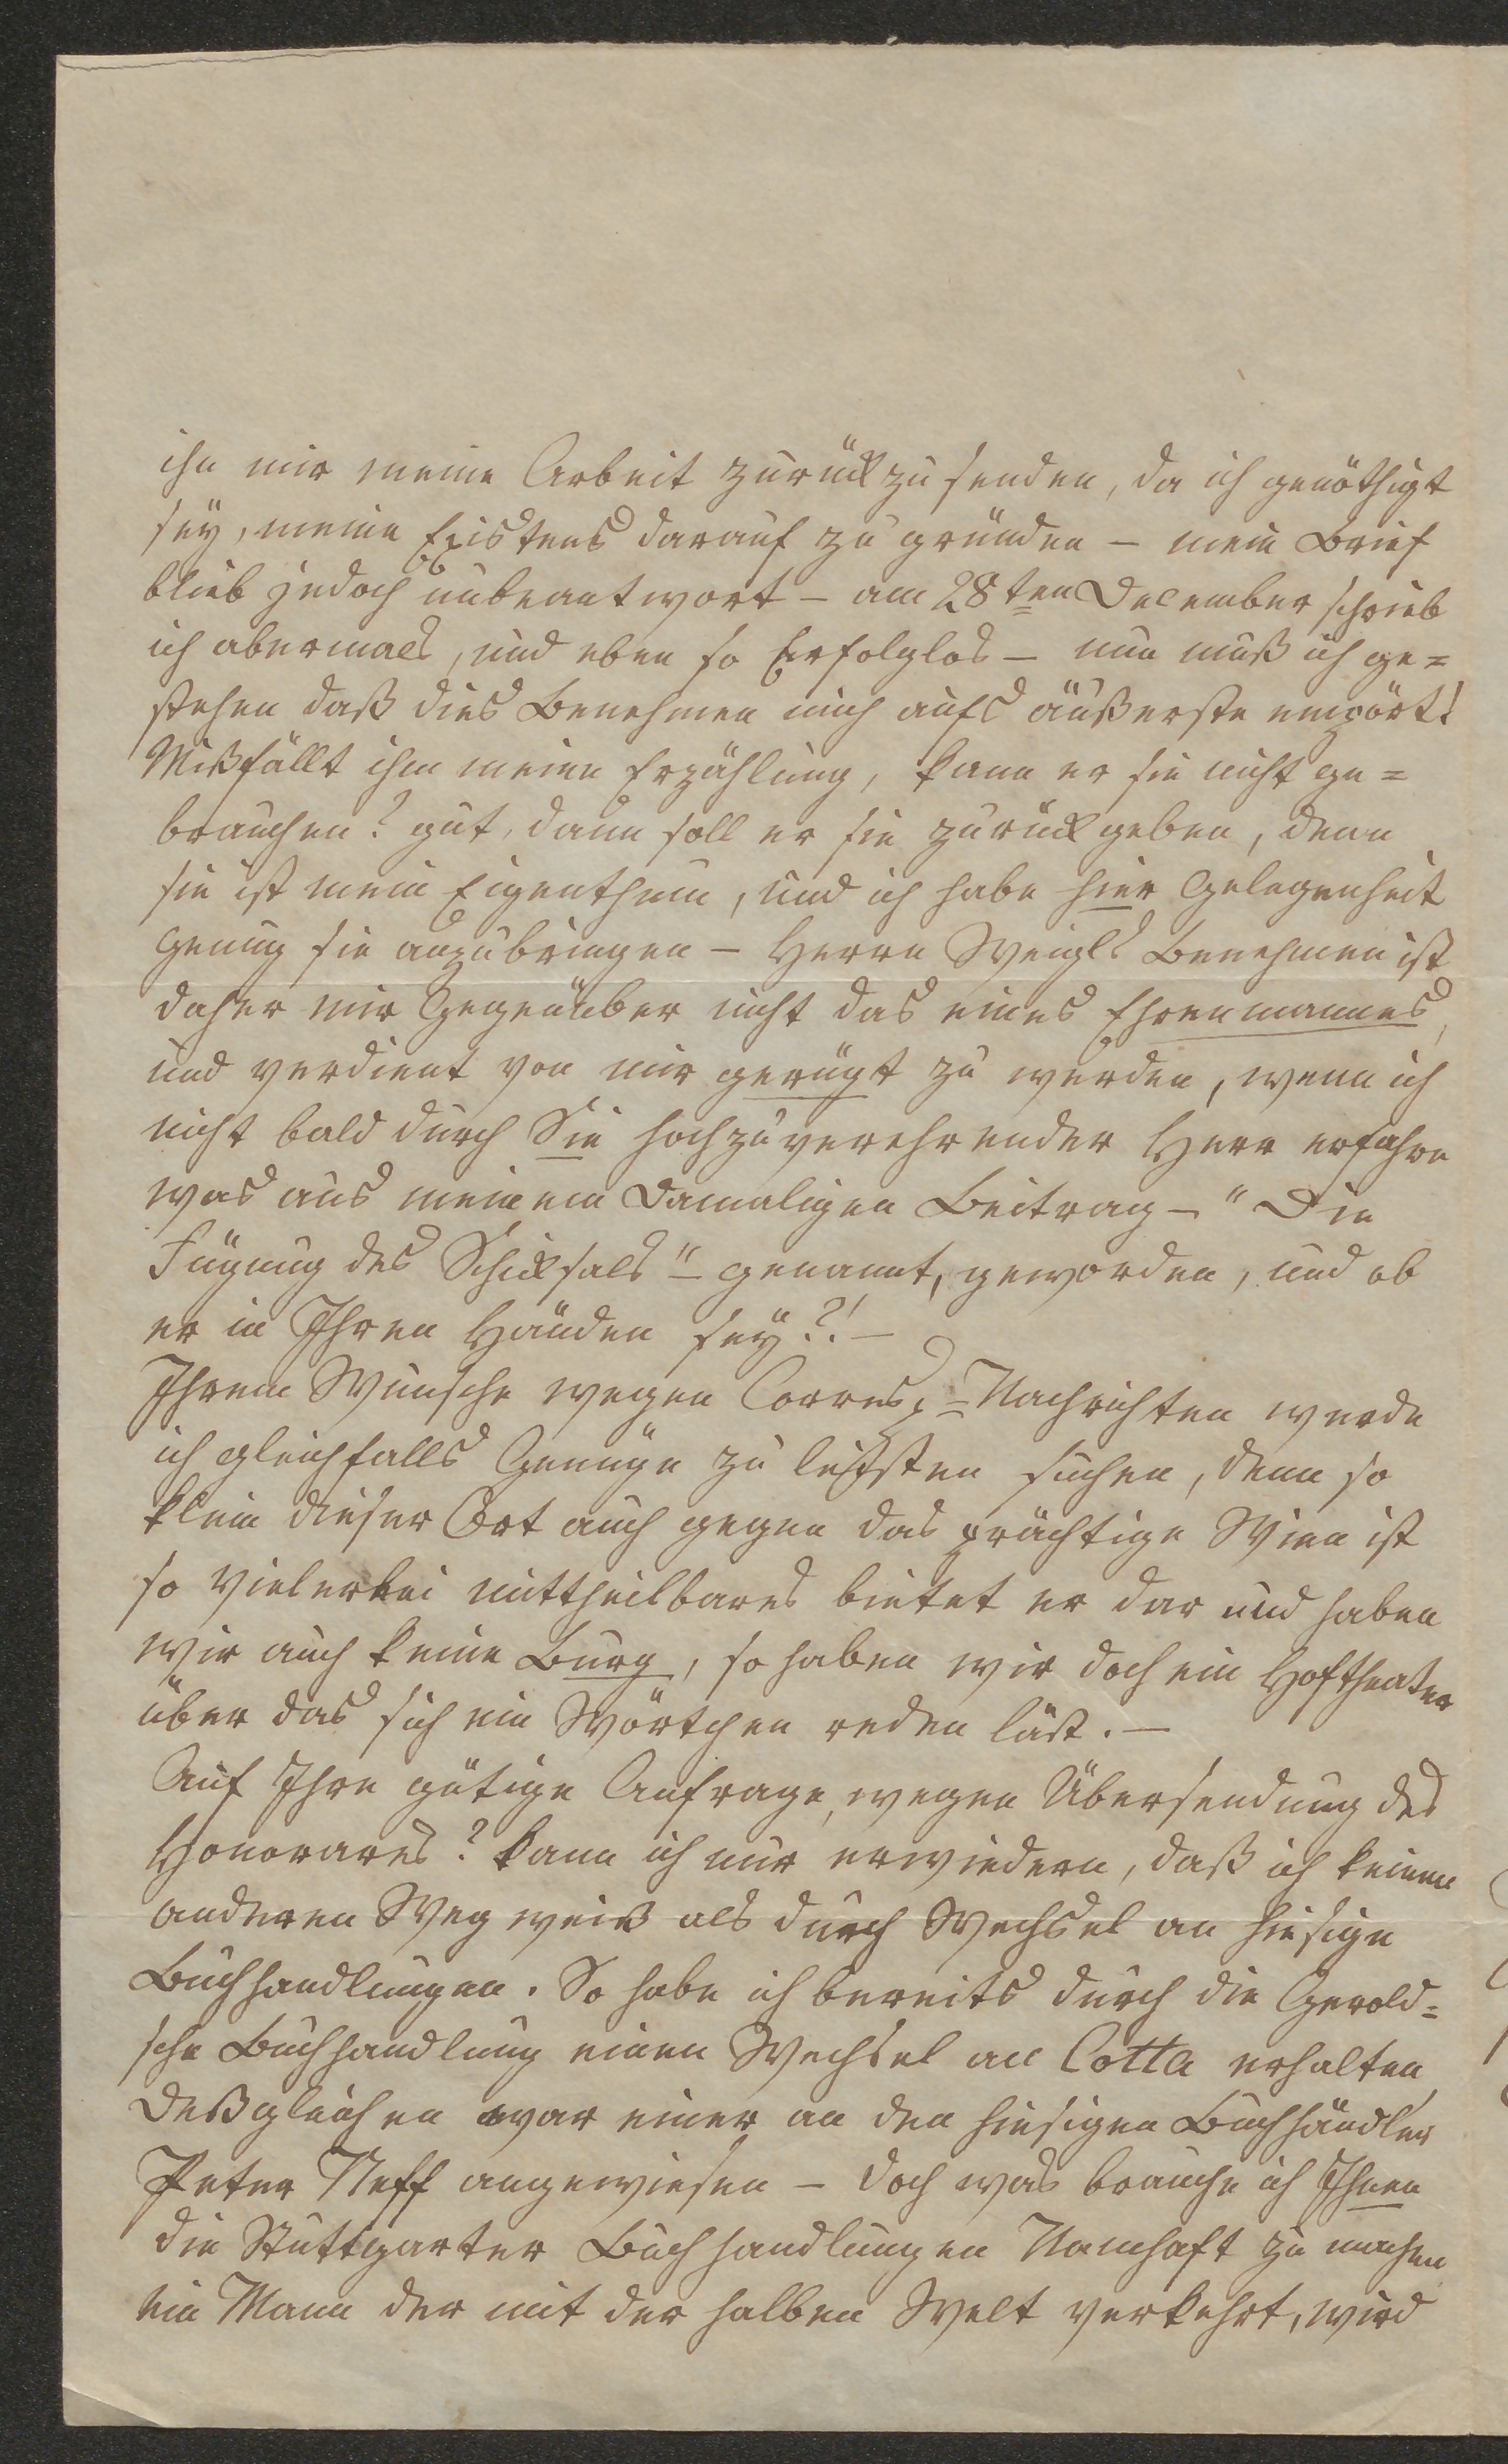 ihn mir meine Arbeit zurückzusenden, da ich genöthigt
sey, meine Existens darauf zu gründen – mein Brief
blieb jedoch unbeantwort – am 28ten December schrieb
ich abermals, und eben so Erfolglos – nun muß ich ge=
stehen daß dies Benehmen mich aufs äußerste empört!
Mißfällt ihm meine Erzählung, kann er sie nicht ge=
brauchen? gut, dann soll er sie zurückgeben, denn
sie ist mein Eigenthum, und ich habe hier Gelegenheit
genug sie anzubringen – Herrn Weigls Benehmen ist
daher mir Gegenüber nicht das eines Ehrenmannes,
und verdient von mir gerügt zu werden, wenn ich
nicht bald durch Sie hochzuverehrender Herr erfahre
was aus meinem Damaligen Beitrag – "Die
Fügung des Schiksals" – genannt, geworden, und ob
er in Ihren Händen sey?! –
Ihrem Wunsche wegen Corresp.=Nachrichten werde
ich gleichfalls Genüge zu leisten suchen, denn so
klein dieser Ort auch gegen das prächtige Wien ist
so vielerlei mittheilbares bietet er dar und haben
wir auch keine Burg, so haben wir doch ein Hoftheater
über das sich ein Wörtchen reden läst. –
Auf Ihre gütige Anfrage, wegen Übersendung des
Honorares? kann ich nur erwiedern, daß ich keinen
anderen Weg weiß als durch Wechsel an hiesige
Buchhandlungen. So habe ich bereits durch die Gerold=
sche Buchhandlung einen Wechsel an Cotta erhalten,
deßgleichen war einer an den hiesigen Buchhändler
Peter Neff angewiesen – doch was brauche ich Ihnen
die Stuttgarter Buchhandlungen Namhaft zu machen
ein Mann der mit der halben Welt verkehrt, wird